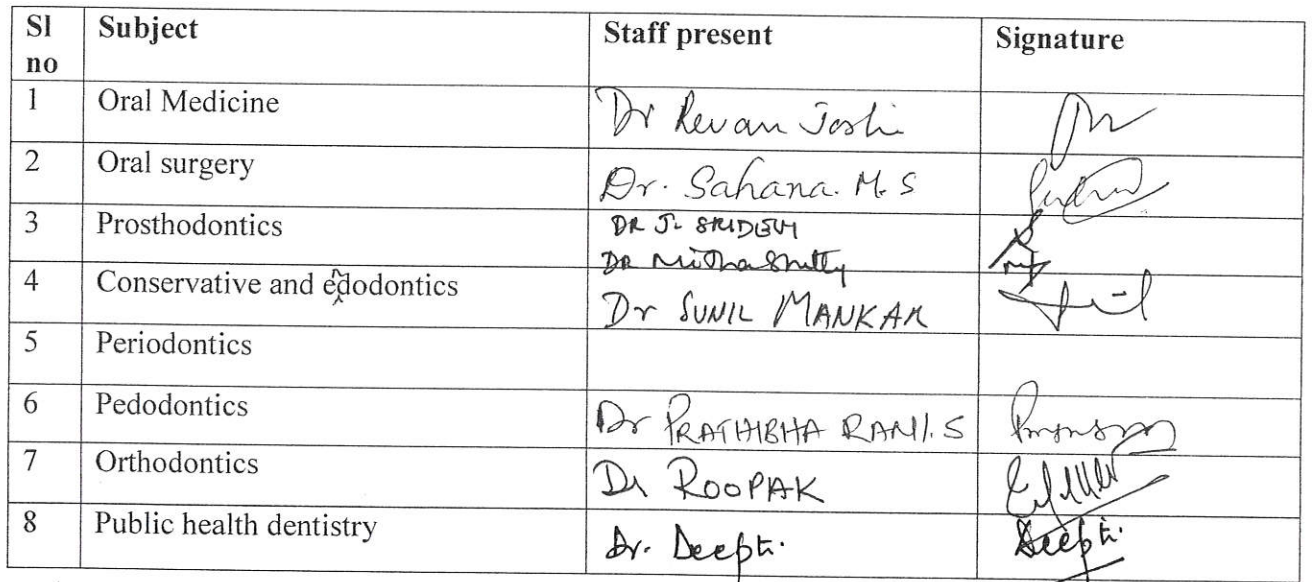 Sl no Subject Staff present Signature
1 Oral Medicine Dr Revan Joshi
2 Oral surgery Dr. Sahana. M. S
3 Prosthodontics DR J. SRIDEVI
DR Mitha Shetty
4 Conservative and endodontics Dr SUNIL MANKAR
5 Periodontics
6 Pedodontics Dr PRATHIBHA RANI. S
7 Orthodontics Dr ROOPAK
8 Public health dentistry Dr. Deepti. Deepti.